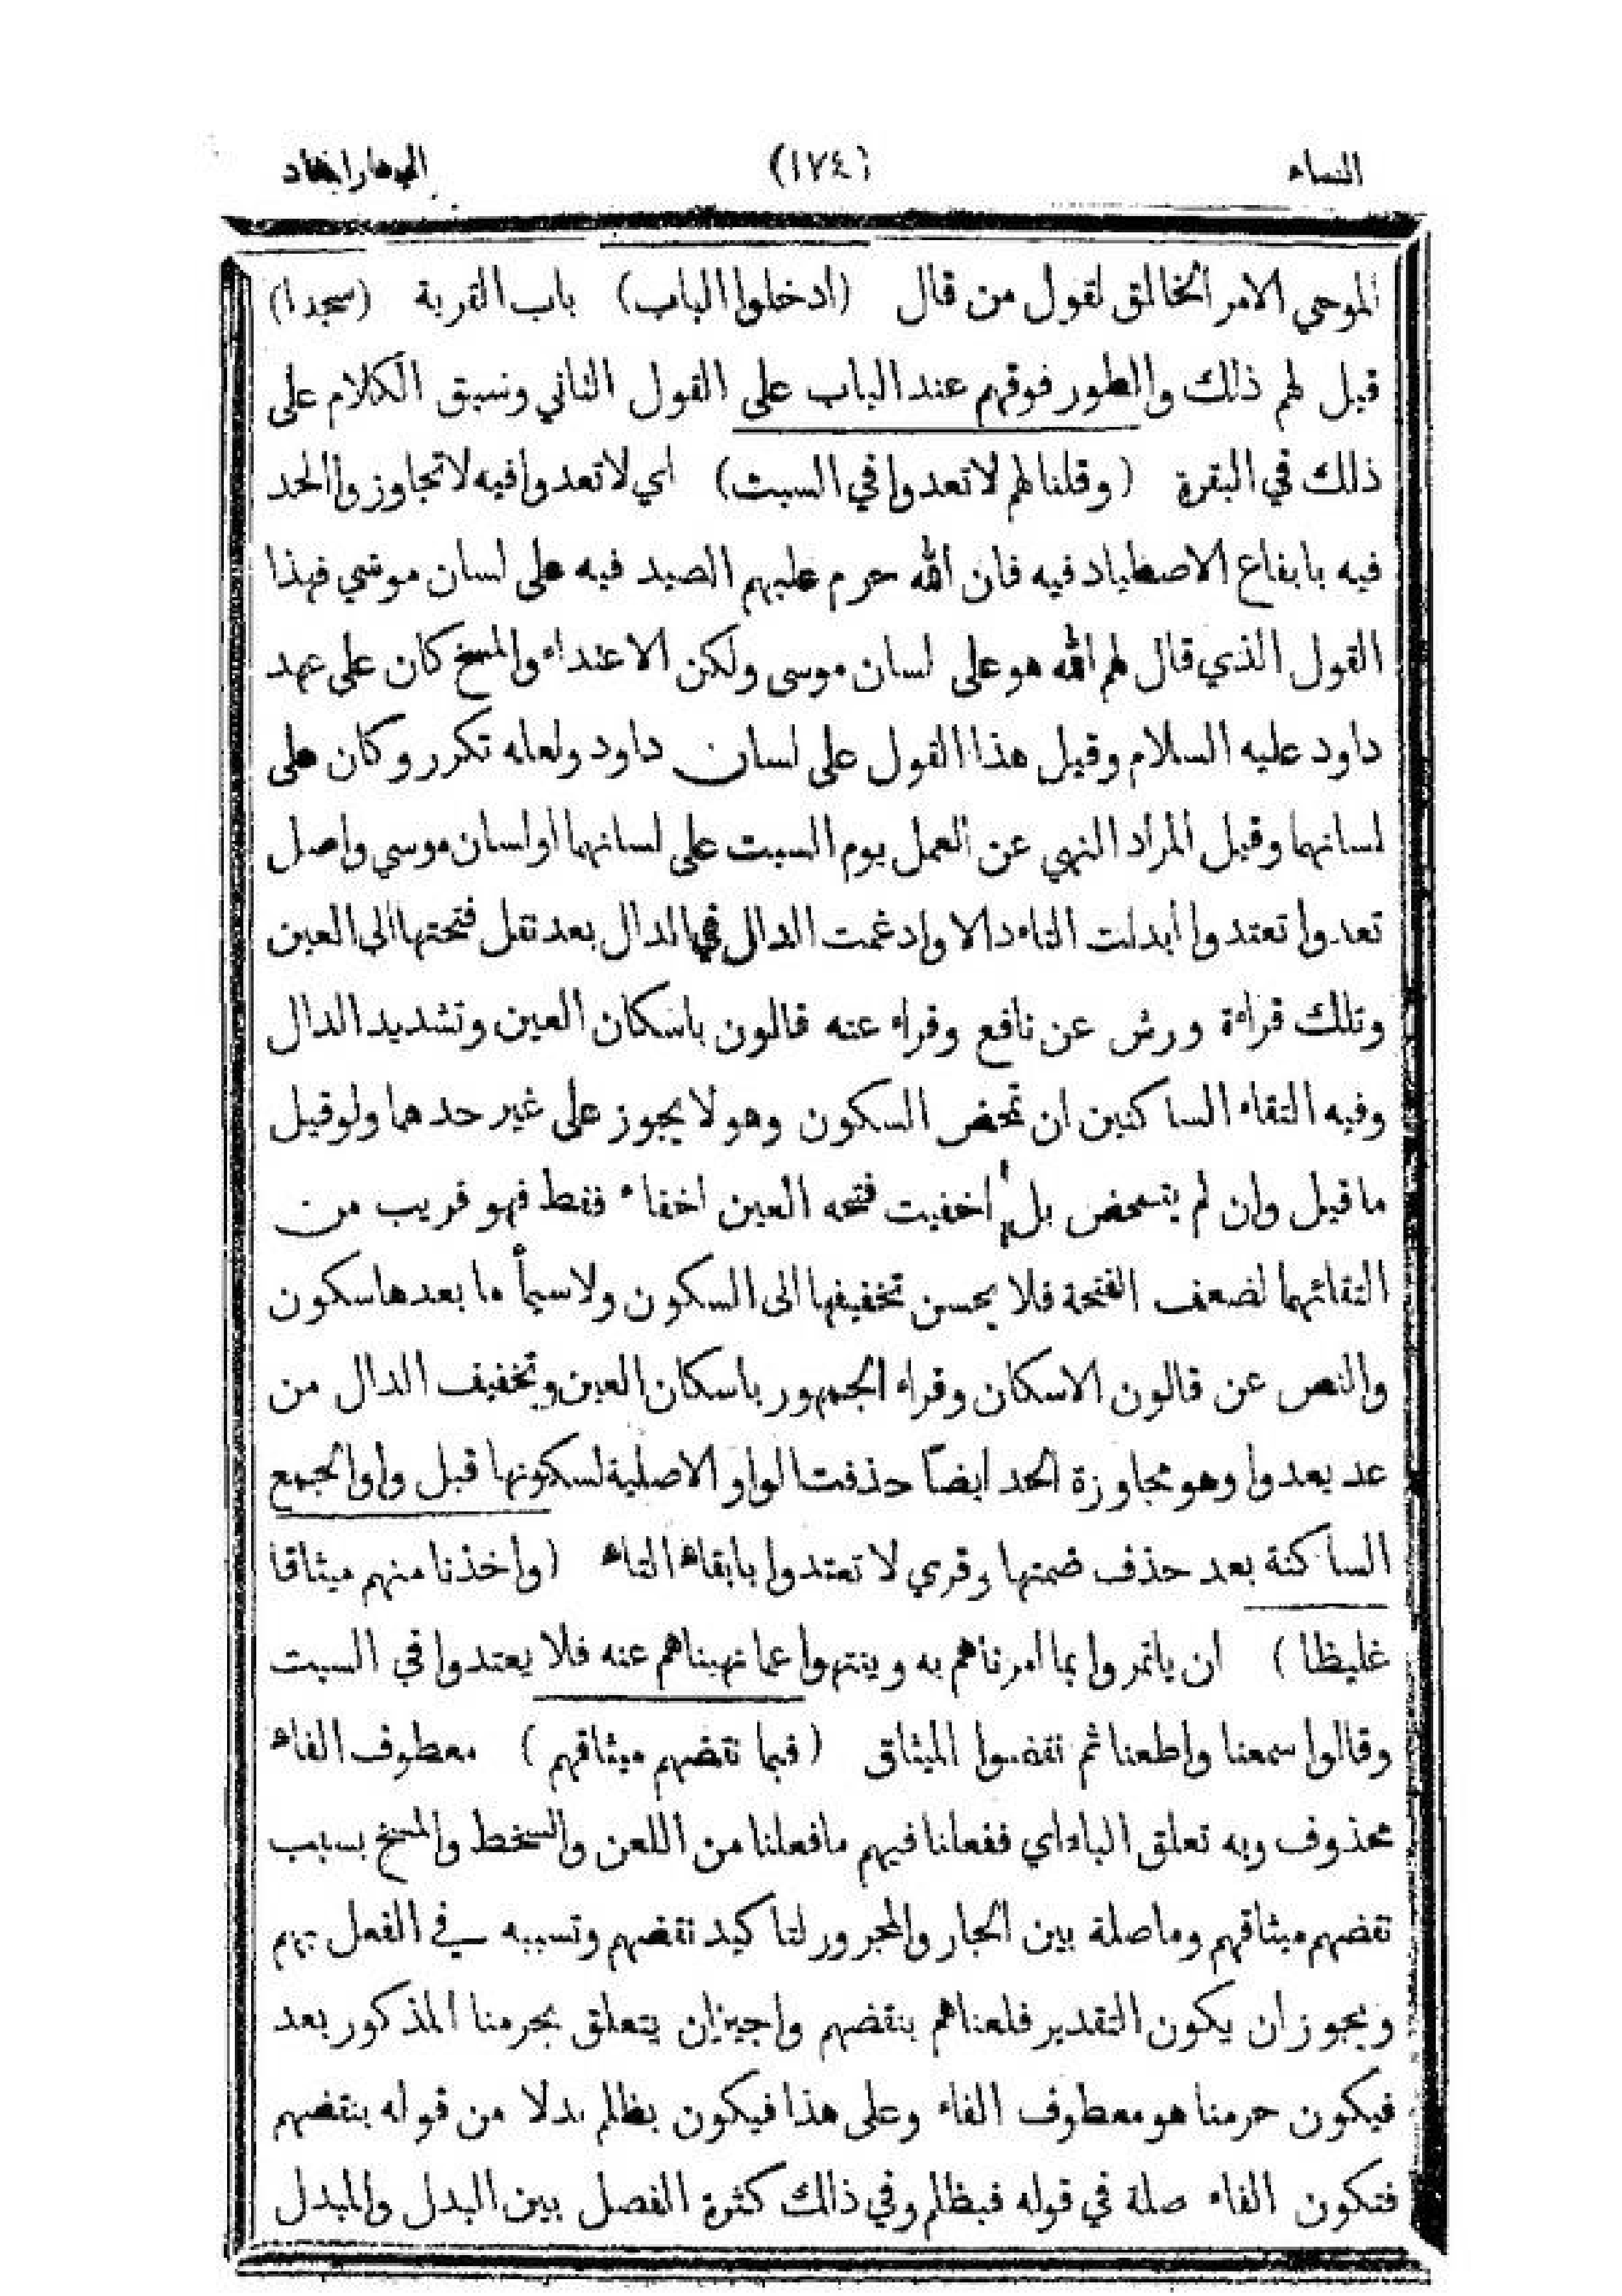 النساء (١٧٤)
الموحي الامر الخالق لقول من قال (ادخلوا الباب) باب القرية (سجدا)
قيل لهم ذلك والطور فوقهم عند الباب على القول الثاني وسبق الكلام على
ذلك في البقرة (وقلنا لهم لا تعدوا في السبت) اي لا تعدوا فيه لا تجاوزوا الحد
فيه بايقاع الاصطياد فيه فان الله حرم عليهم الصيد فيه على لسان موسي فهذا
القول الذي قال لهم الله هو على لسان موسى ولكن الاعتداء والمسخ كان على عهد
داود عليه السلام وقيل هذا القول على لسان داود ولعله تكرر وكان على
لسانهما وقيل المراد النهي عن العمل يوم السبت على لسانهما او لسان موسي واصل
تعدوا تعتدوا ابدلت التاء دالا وادغمت الدال في الدال بعد نقل فتحتها الى العين
وتلك قراءة ورش عن نافع وقراء عنه قالون باسكان العين وتشديد الدال
وفيه التقاء الساكنين ان تمحض السكون وهو لا يجوز على غير حدهما ولو قيل
ما قيل وان لم يتمحض بل اخفيت فتحه العين اخفاء فقط فهو قريب من
التقائهما لضعف الفتحة فلا يحسن تخفيفها الى السكون ولا سيما ما بعدها سكون
والنص عن قالون الاسكان وقراء الجمهور باسكان العين وتخفيف الدال من
عد يعدوا وهو مجاوزة الحد ايضاً حذفت الواو الاصلية لسكونها قبل واو الجمع
الساكنة بعد حذف ضمتها وقري لا تعتدوا بابقاء التاء (واخذنا منهم ميثاقا
غليظا) ان ياتمروا بما امرناهم به وينتهوا عما نهيناهم عنه فلا يعتدوا في السبت
وقالوا سمعنا واطعنا ثم نقضوا الميثاق (فبما نقضهم ميثاقهم) معطوف الفاء
محذوف وبه تعلق الباء اي ففعلنا فيهم ما فعلنا من اللعن والسخط والمسخ بسبب
نقضهم ميثاقهم وما صلة بين الجار والمجرور لتاكيد نقضهم وتسببه في الفعل بهم
ويجوز ان يكون التقدير فلعناهم بنقضهم واجيز ان يتعلق بحرمنا المذكور بعد
فيكون حرمنا هو معطوف الفاء وعلى هذا فيكون بظلم بدلا من قوله بنقضهم
فتكون الفاء صلة في قوله فبظلم وفي ذلك كثرة الفصل بين البدل والمبدل